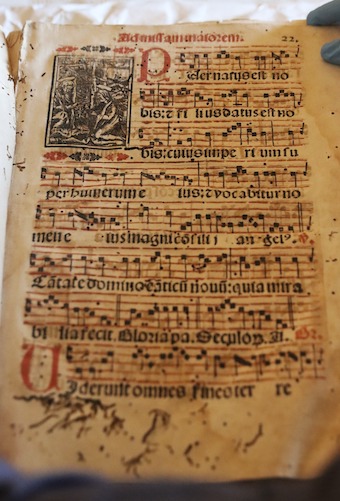 Ad missam maiorem. 22.
P uer natus est no
bis: et fi lius datus est no
bis: cuius impe ri um su
per humerum e ius: et vocabitur no
men e ius magni cōsili i an gel⁹. p̄.
Cātate domino cāticū nouū: quia mira
bi lia fecit. Gloria pa. Seculoꝝ. A. Gr.
U iderunt omnes fines ter re